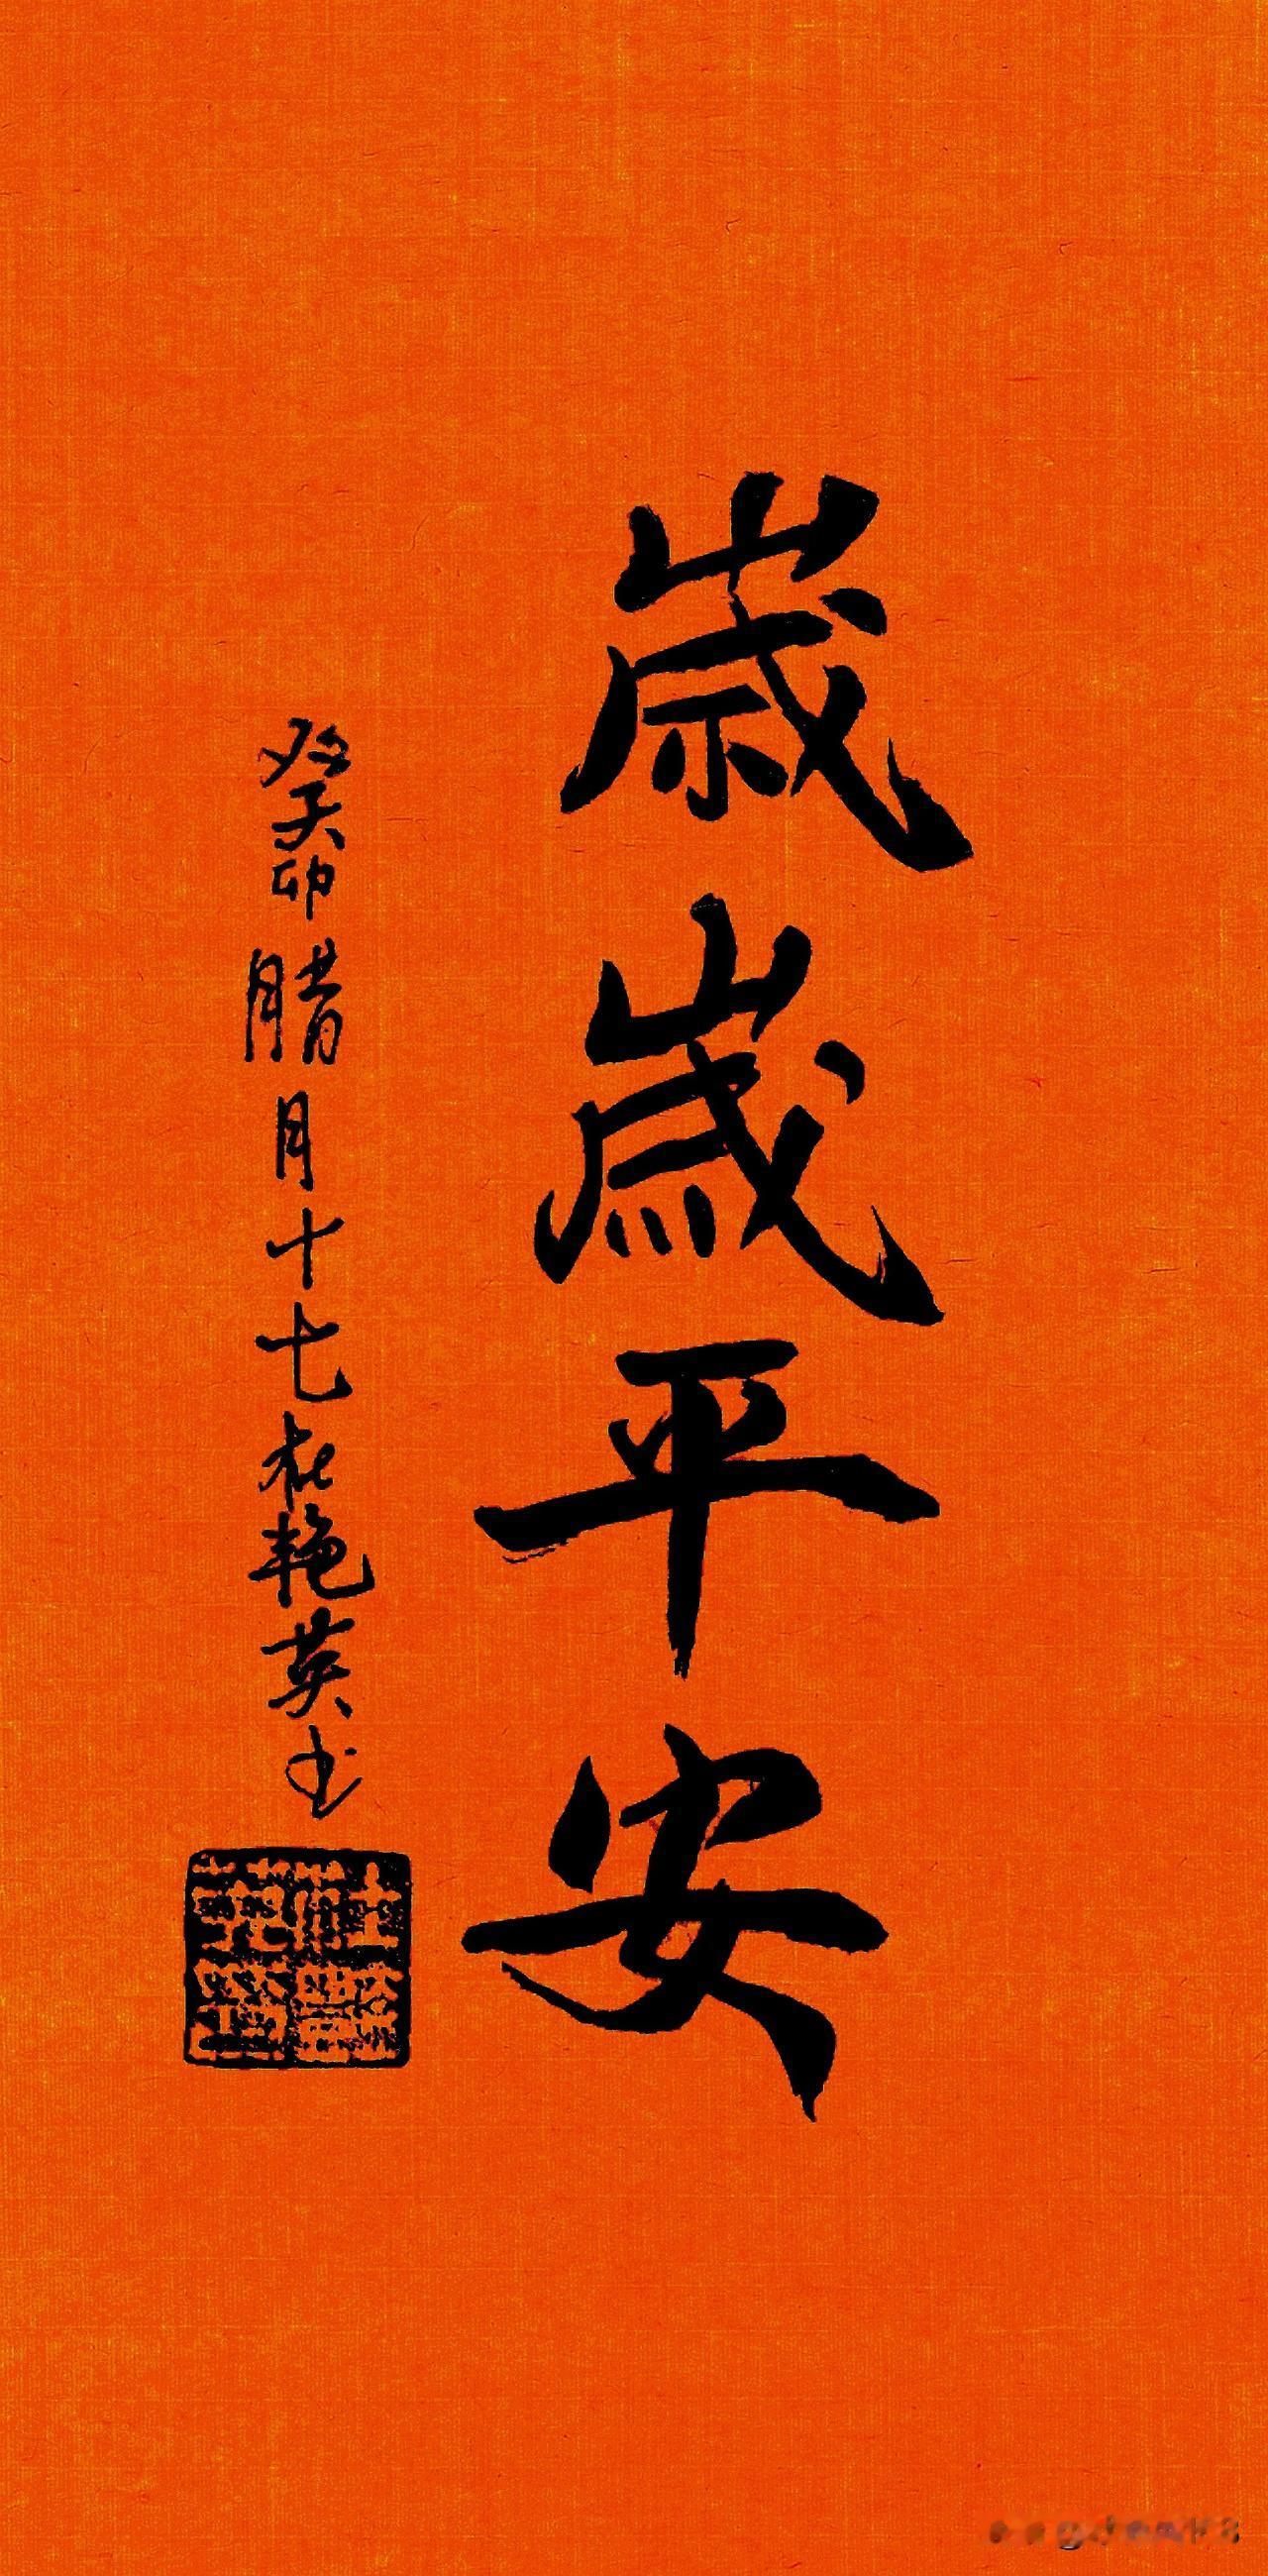 歲歲平安
癸卯腊月十七 艳英书